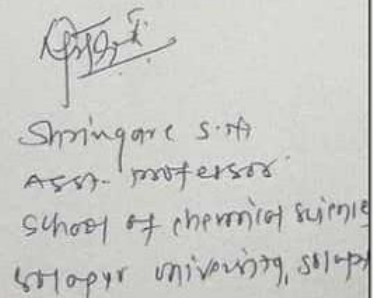 Shringare S.A
Asst. professor
School of chemical science
solapur university, solapu